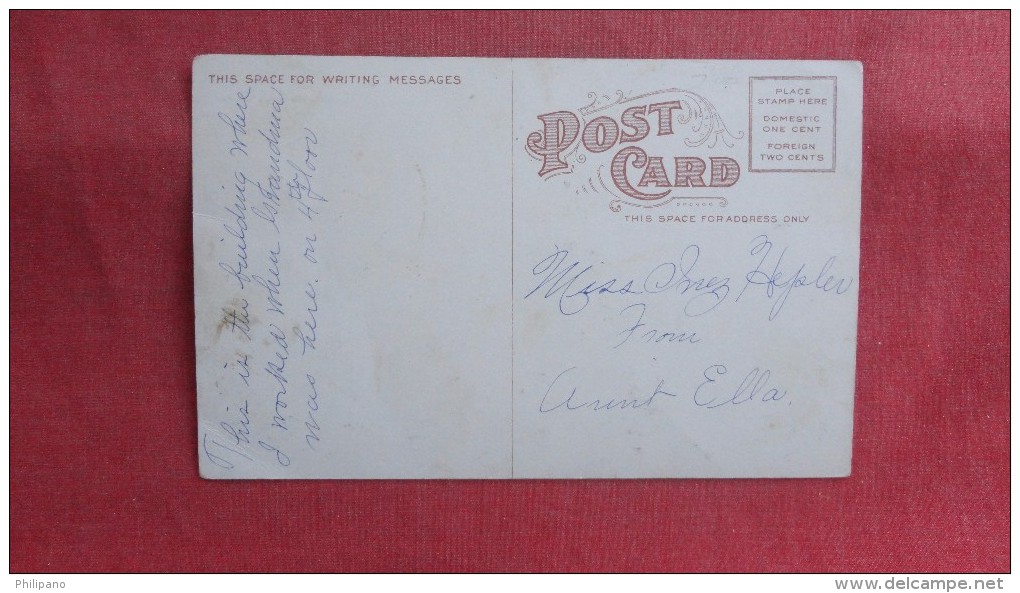 THIS SPACE FOR WRITING MESSAGES
This is the building where
I worked when Grandma
was here. on 4th floor
POST
CARD
THIS SPACE FOR ADDRESS ONLY
PLACE
STAMP HERE
DOMESTIC
ONE CENT
FOREIGN
TWO CENTS
Miss Inez Hepler
From
Aunt Ella.
Philipano
www.delcampe.net